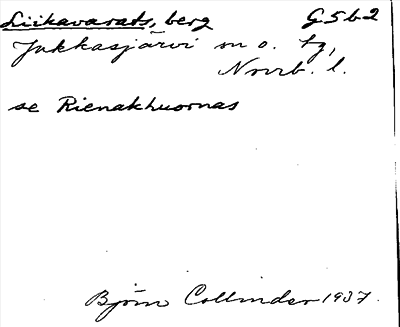 Liikavarats, berg G5b2
Jukkasjärvi sn o. tg,
Norrb. l.
se Rienakhuornas
Björn Collinder 1937.